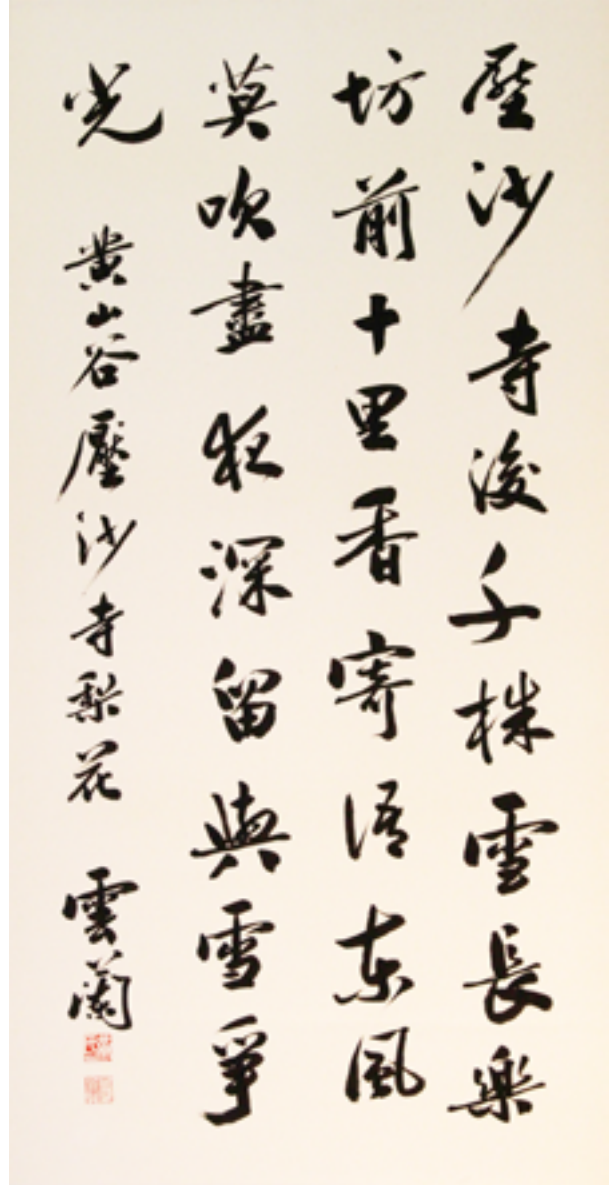 壓沙寺後千株雪長楽
坊前十里香寄語東風
莫吹盡夜深留與雪爭
光 黄山谷壓沙寺梨花 雲蘭